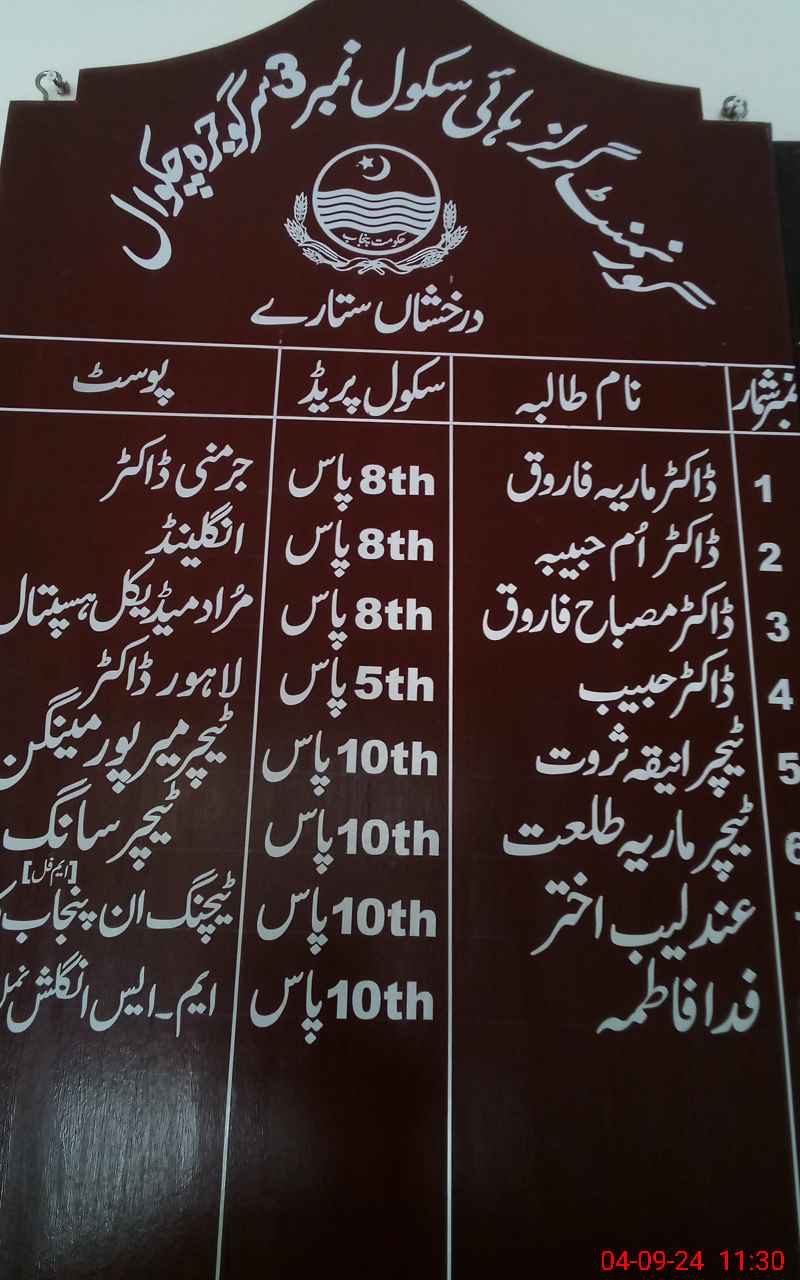 گورنمنٹ گرلز ہائی سکول نمبر 3 سرگوجرہ چکوال
حکومت پنجاب
درخشاں ستارے
نمبر شمار نام طالبہ سکول پریڈ پوسٹ
1 ڈاکٹر ماریہ فاروق 8th پاس جرمنی ڈاکٹر
2 ڈاکٹر اُم حبیبہ 8th پاس انگلینڈ
3 ڈاکٹر مصباح فاروق 8th پاس مُراد میڈیکل ہسپتال
4 ڈاکٹر حبیب 5th پاس لاہور ڈاکٹر
5 ٹیچر انیقہ ثروت 10th پاس ٹیچر میرپور مینگن
6 ٹیچر ماریہ طلعت 10th پاس ٹیچر سانگ
[ایم فل]
عندلیب اختر 10th پاس ٹیچنگ ان پنجاب
فدا فاطمہ 10th پاس ایم۔ایس انگلش
04-09-24 11:30